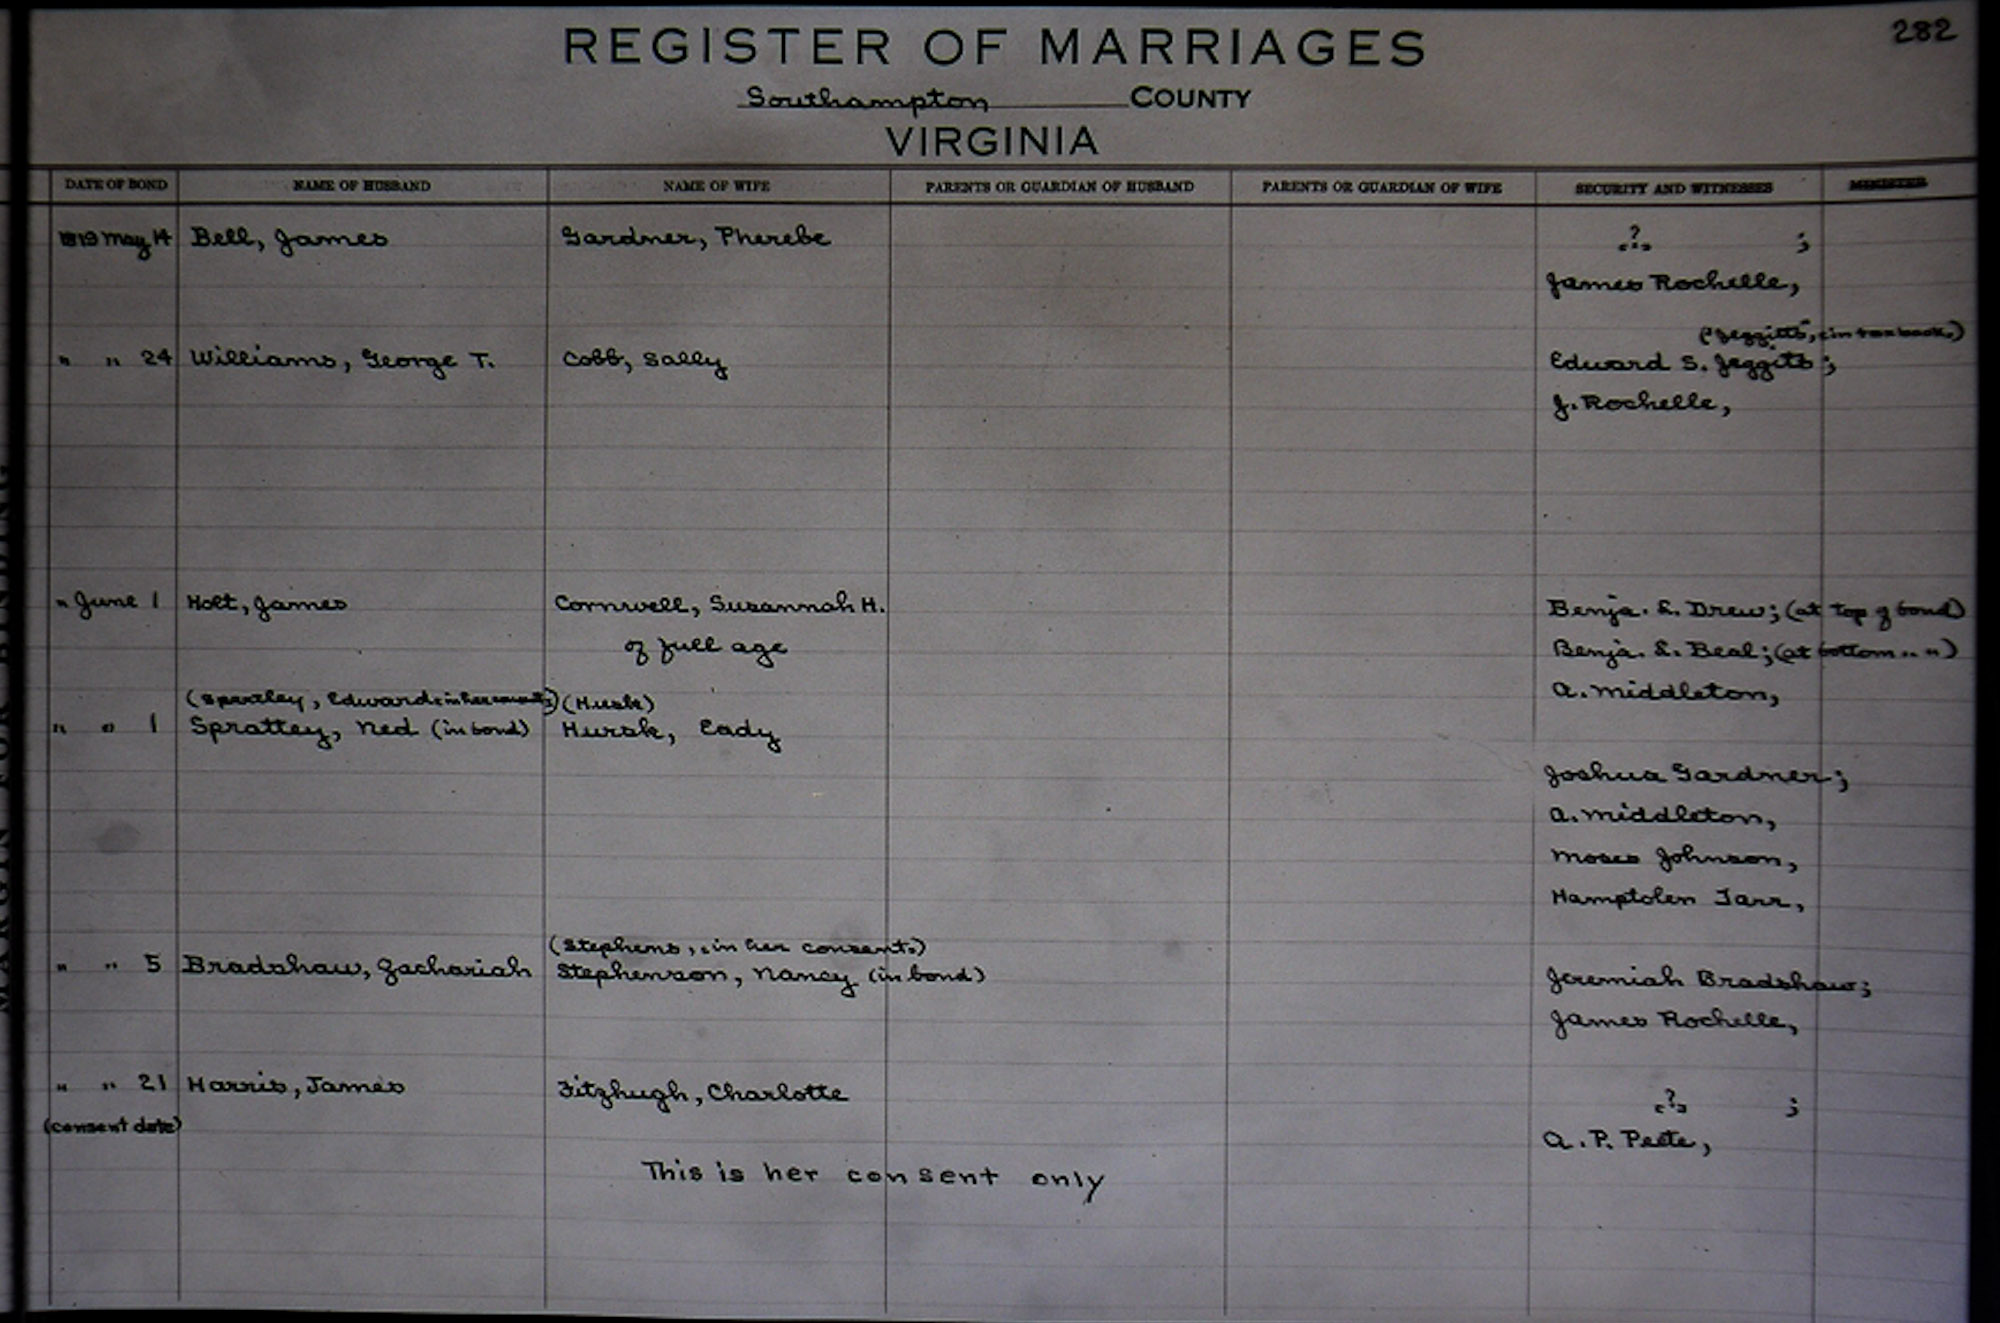 282
REGISTER OF MARRIAGES
Southampton COUNTY
VIRGINIA
DATE OF BOND NAME OF HUSBAND NAME OF WIFE PARENTS OR GUARDIAN OF HUSBAND PARENTS OR GUARDIAN OF WIFE SECURITY AND WITNESSES MINISTER
1819 May 14 Bell, James Gardner, Pherebe ? ;
James Rochelle,
("Jeggitts", in tax book.)
" " 24 Williams, George T. Cobb, Sally Edward S. Jeggitts;
J. Rochelle,
" June 1 Holt, James Cornwell, Susannah H. Benja. S. Drew; (at top of bond)
of full age Benja. S. Beal; (at bottom " ")
(Spratley, Edward in her consent) (Husk) A. Middleton,
" " 1 Sprattey, Ned (in bond) Hursk, Eady
Joshua Gardner;
A. Middleton,
Moses Johnson,
Hamptolen Tarr,
(Stephens, in her consent.)
" " 5 Bradshaw, Zachariah Stephenson, Nancy (in bond) Jeremiah Bradshaw;
James Rochelle,
" " 21 Harris, James Fitzhugh, Charlotte ? ;
(consent date) A. P. Peete,
This is her consent only
MARGIN FOR BINDING